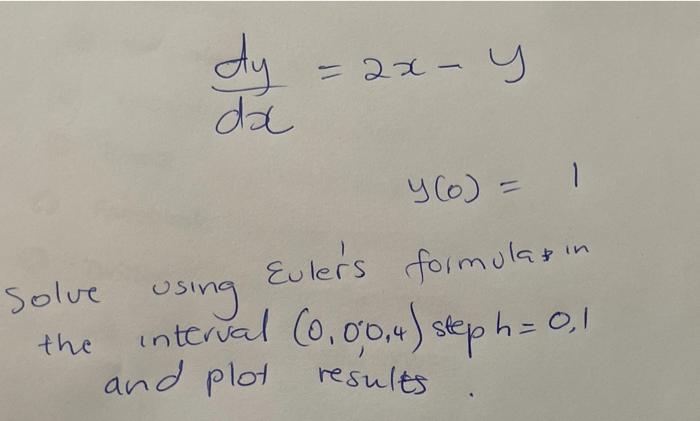 dy/dx = 2x - y
y(0) = 1
Solve using Euler's formula in
the interval (0,0;0,4) step h = 0,1
and plot results.